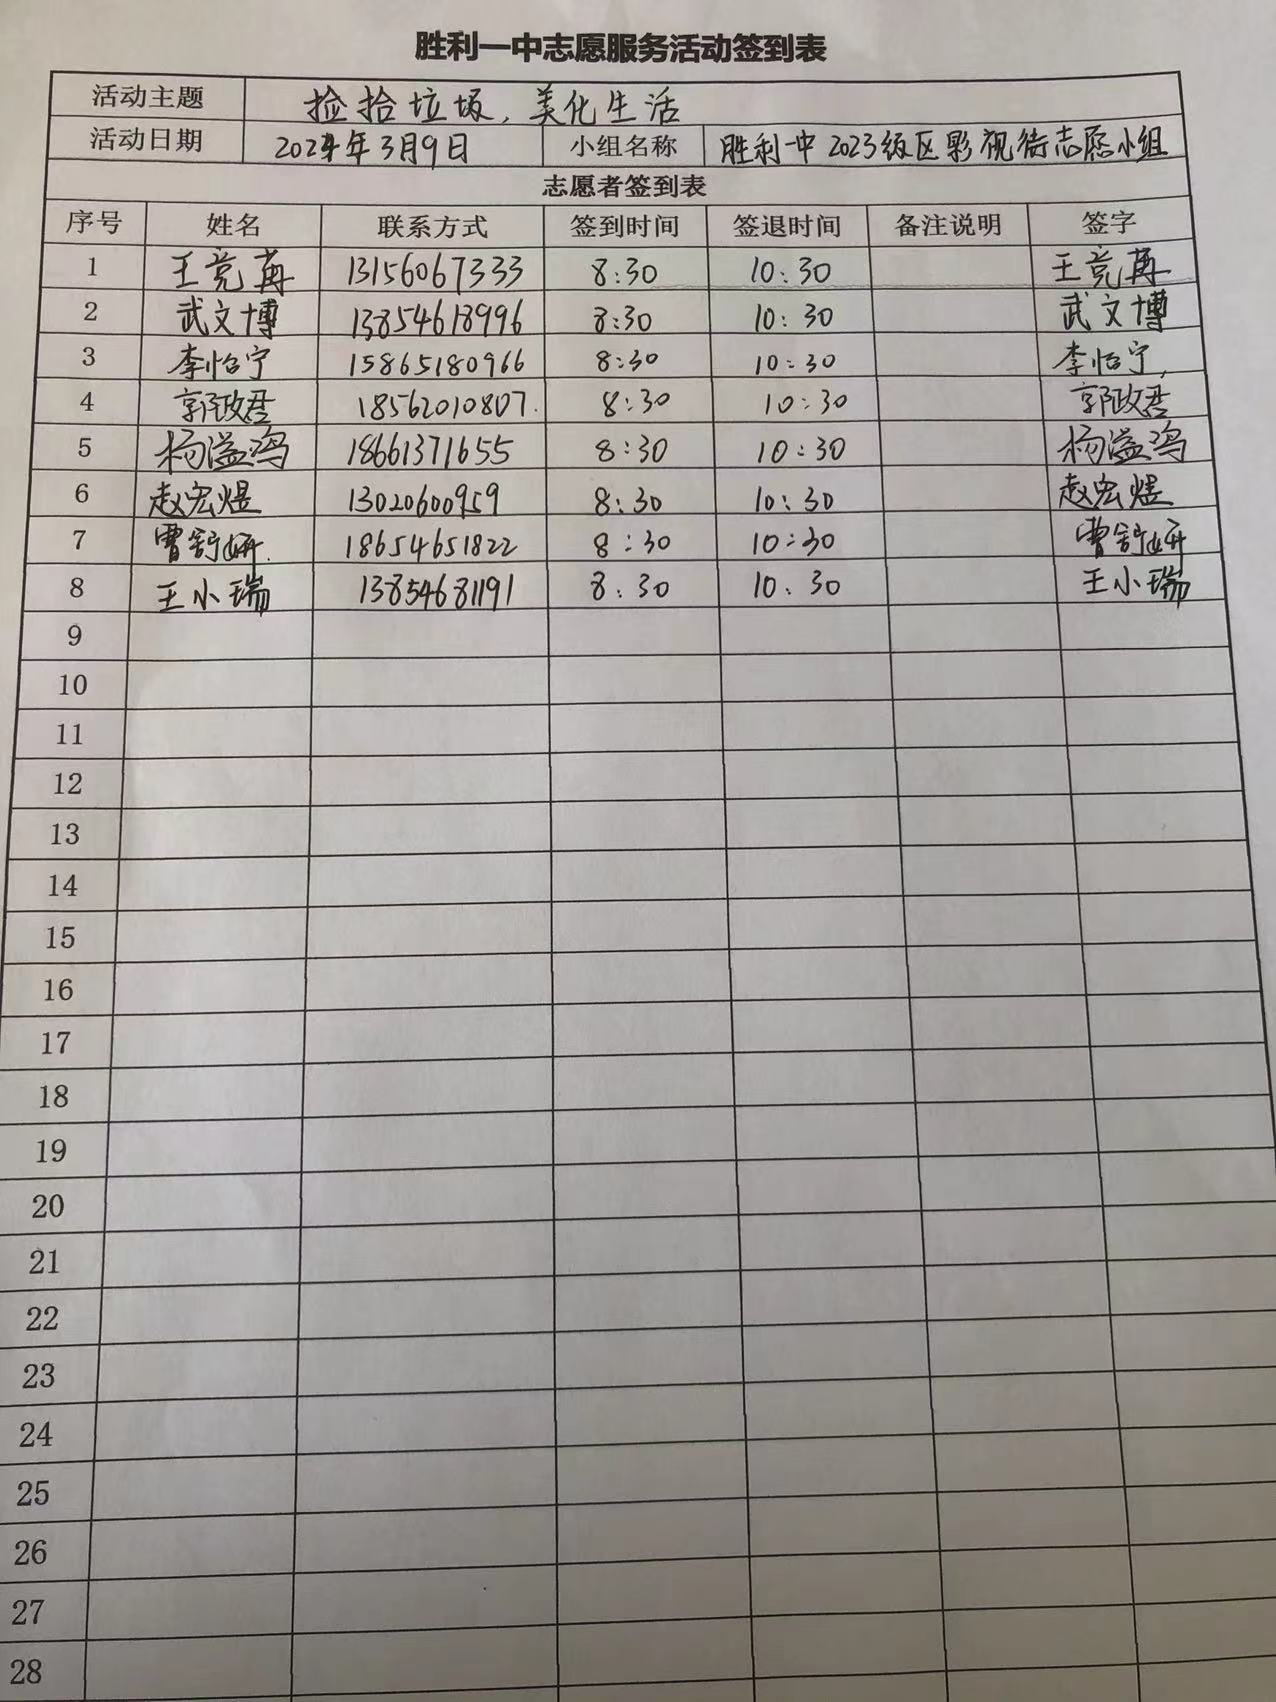 胜利一中志愿服务活动签到表
活动主题 捡拾垃圾,美化生活
活动日期 2024年3月9日 小组名称 胜利一中2023级区影视街志愿小组
志愿者签到表
序号 姓名 联系方式 签到时间 签退时间 备注说明 签字
1 王竞苒 13156067333 8:30 10:30 王竞苒
2 武文博 13854618996 8:30 10:30 武文博
3 李怡宁 15865180966 8:30 10:30 李怡宁
4 郭政君 18562010807 8:30 10:30 郭政君
5 杨溢鸿 18661371655 8:30 10:30 杨溢鸿
6 赵宏煜 13020600959 8:30 10:30 赵宏煜
7 曹舒妍 18654651822 8:30 10:30 曹舒妍
8 王小瑞 13854681191 8:30 10:30 王小瑞
9
10
11
12
13
14
15
16
17
18
19
20
21
22
23
24
25
26
27
28